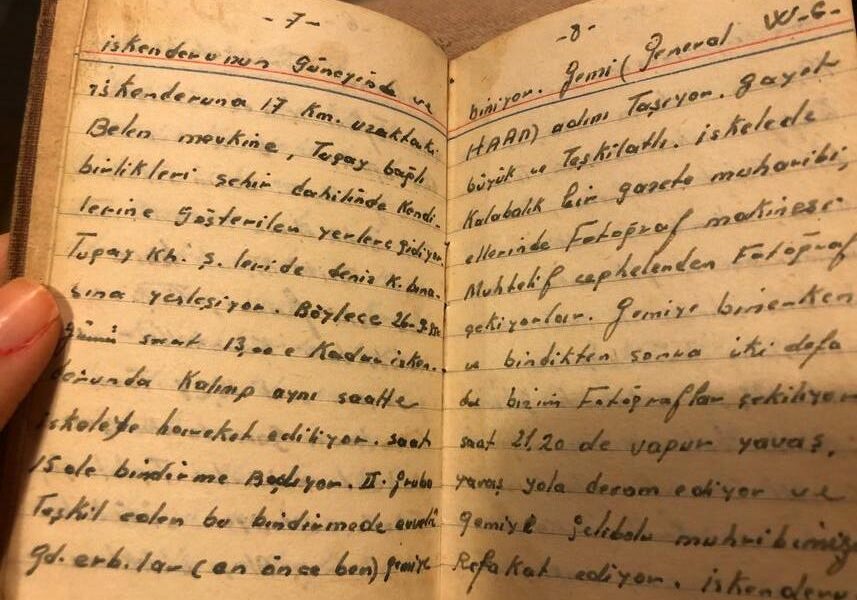 -7-
iskenderunun Güneyinde ve
iskenderuna 17 Km. uzaktaki
Belen mevkine, Tugay bağlı
birlikleri şehir dahilinde Kendi-
lerine Gösterilen yerlere gidiyor.
Tugay Kh. ş. leride deniz K. bina-
sına yerleşiyor. Böylece 26-9-
Günü saat 13,00 e Kadar isken.
derunda Kalınıp aynı saatte
iskeleye hareket ediliyor. saat
15 de bindirme Başlıyor. II. Grubu
Teşkil eden bu bindirmede evvelâ
Gd. erb. lar (en önce ben) gemiye
-8-
biniyor. Gemi (General W-G-
HAAN) adını Taşıyor. gayet
büyük ve Teşkilatlı. iskelede
Kalabalık bir gazete muharibi,
ellerinde Fotoğraf makinesi
Muhtelif cephelerden Fotoğraf
çekiyorlar. Gemiye binerken
ve bindikten sonra iki defa
da bizim Fotoğraflar çekiliyor
saat 21,20 de vapur yavaş,
yavaş yola devam ediyor ve
gemiye Gelibolu muhribimiz
Refakat ediyor. iskenderu